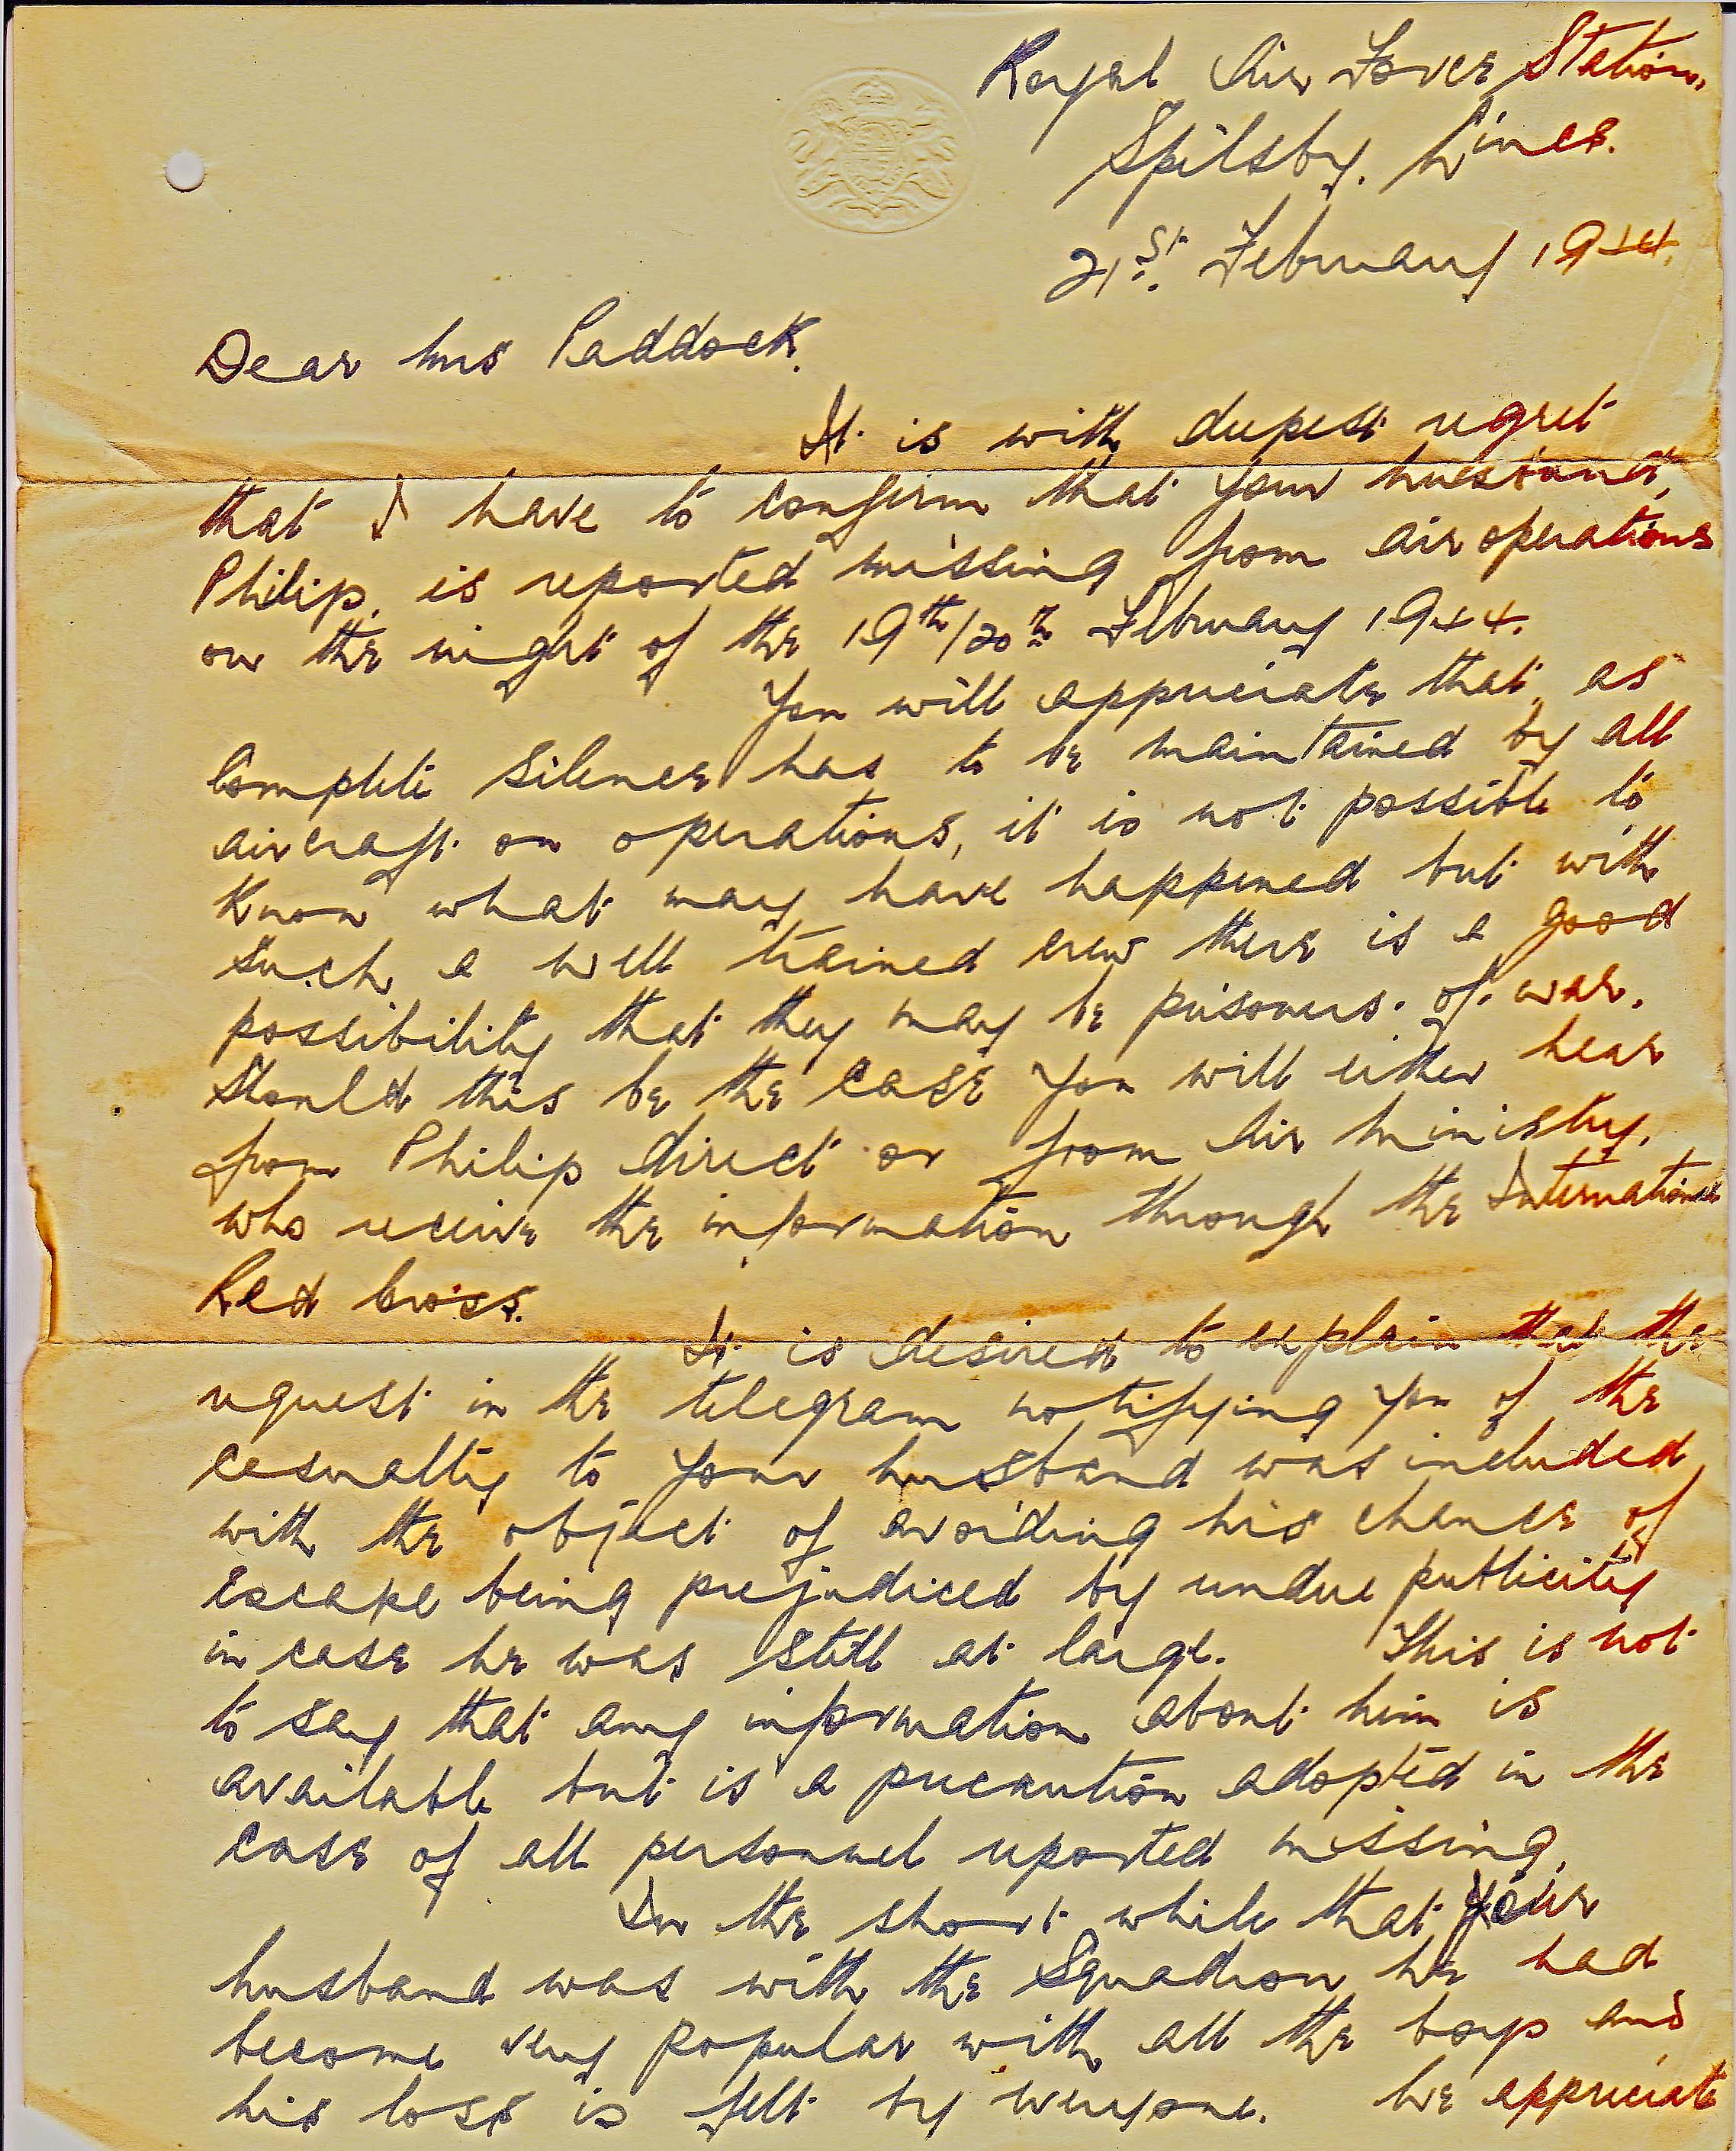 Royal Air Force Station,
Spilsby. Lincs.
21st February 1944.
Dear Mrs Paddock.
It is with deepest regret
that I have to confirm that your husband,
Philip, is reported missing from air operations
on the night of the 19th/20th February 1944.
You will appreciate that, as
complete silence has to be maintained by all
aircraft on operations, it is not possible to
know what may have happened but with
such a well trained crew there is a good
possibility that they may be prisoners of war.
Should this be the case you will either hear
from Philip direct or from Air Ministry,
who receive the information through the International
Red Cross.
It is desired to explain that the
request in the telegram notifying you of the
casualty to your husband was included
with the object of avoiding his chance of
escape being prejudiced by undue publicity
in case he was still at large. This is not
to say that any information about him is
available but is a precaution adopted in the
case of all personnel reported missing.
In the short while that your
husband was with the Squadron he had
become very popular with all the boys and
his loss is felt by everyone. We appreciate